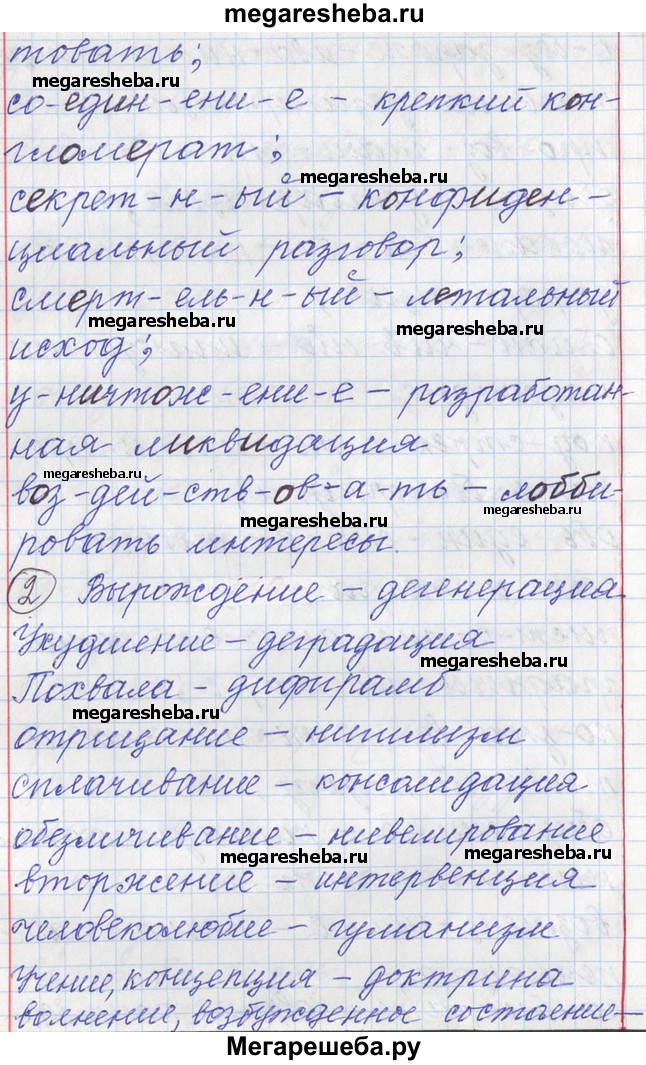 megaresheba.ru
товать;
megaresheba.ru
со-един-ени-е – крепкий кон-
гломерат;
megaresheba.ru
секрет-н-ый – конфиден-
циальный разговор;
смерт-ель-н-ый – летальный
megaresheba.ru
megaresheba.ru
исход;
у-ничтож-ени-е – разработан-
ная ликвидация
megaresheba.ru
воз-дей-ств-ов-а-ть – лобби-
megaresheba.ru
megaresheba.ru
ровать интересы.
2 Вырождение – дегенерация
Ухудшение – деградация
megaresheba.ru
Похвала – дифирамб
megaresheba.ru
отрицание – нигилизм
сплачивание – консолидация
обезличивание – нивелирование
megaresheba.ru
вторжение – интервенция
человеколюбие – гуманизм
Учение, концепция – доктрина
волнение, возбужденное состояние –
Мегарешеба.ру